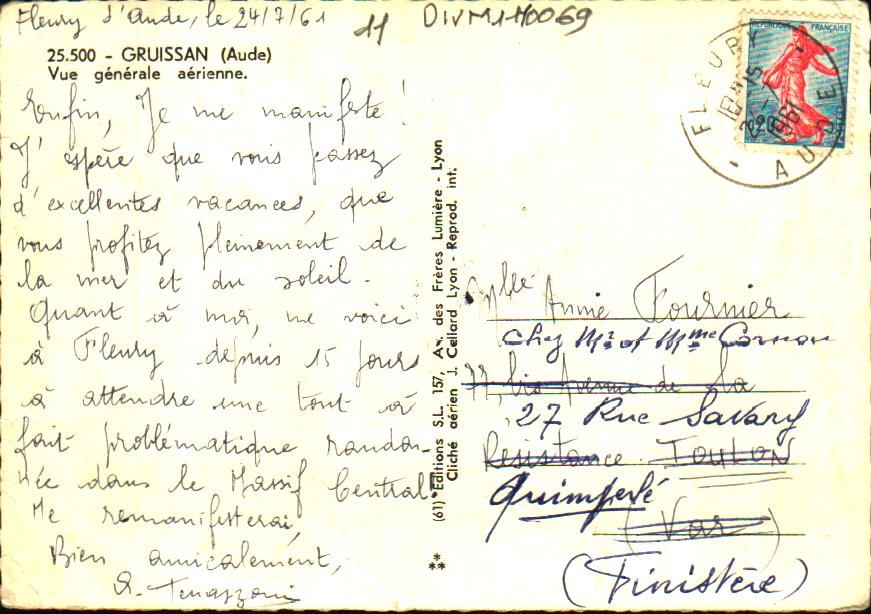 Fleury d'Aude, le 24/7/61
11 DIVM140069
25.500 - GRUISSAN (Aude)
Vue générale aérienne.
Enfin, Je me manifeste !
J'espère que vous passez
d'excellentes vacances, que
vous profitez pleinement de
la mer et du soleil.
Quant à moi, me voici
à Fleury depuis 15 jours
à attendre une tout à
fait problématique randon-
née dans le Massif Central
Me remanifesterai,
Bien amicalement,
(61) Editions S.L. 157, Av. des Frères Lumière - Lyon
Cliché aérien J. Cellard Lyon - Reprod. int.
REPUBLIQUE FRANÇAISE
POSTES
FLEURY
AUDE
1961
Mlle Annie Fournier
chez Mr et Mme Cornou
77, bis Avenue de la
27 Rue Savary
Resistance TOULON
Quimperlé
(Var)
(Finistère)